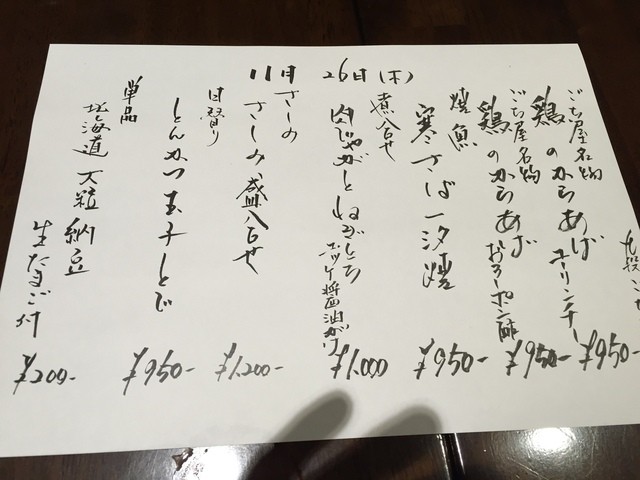 11月 26日(木)
ごち屋名物
鶏のからあげ ユーリンチー
¥950-
ごち屋名物
鶏のからあげ おろしポン酢
¥950-
焼魚
寒さば一汐焼
¥950-
煮合せ
肉じゃがと
醤油がけ
¥1.000
さしみ
さしみ盛合せ
¥1.200-
日替り
とんかつ玉子とじ
¥950-
単品
北海道 大粒 納豆
生たまご付
¥200-